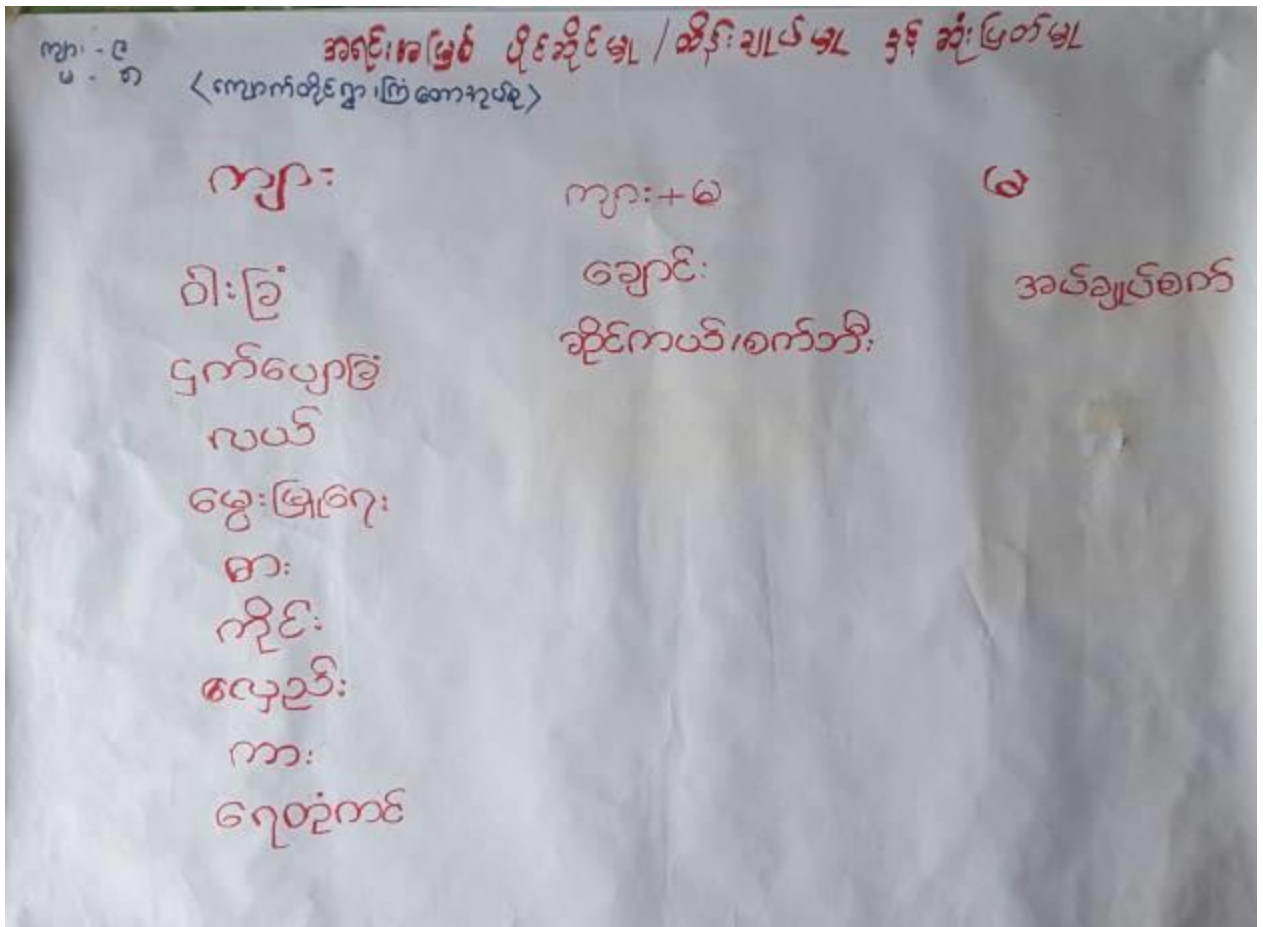 ကျား - ၉
မ - ၈
အရင်းအမြစ် ပိုင်ဆိုင်မှု / ထိန်းချုပ်မှု နှင့် ဆုံးဖြတ်မှု
<ကျောက်တိုင်ရွာ၊ကြံတောအုပ်စု>
ကျား
ကျား+မ
မ
ဝါးခြံ
ငှက်ပျောခြံ
လယ်
မွေးမြူရေး
ဓား
ကိုင်း
လှည်း
ကား
ရေတံုကင်
ချောင်း
ဆိုင်ကယ်၊စက်ဘီး
အပ်ချုပ်စက်